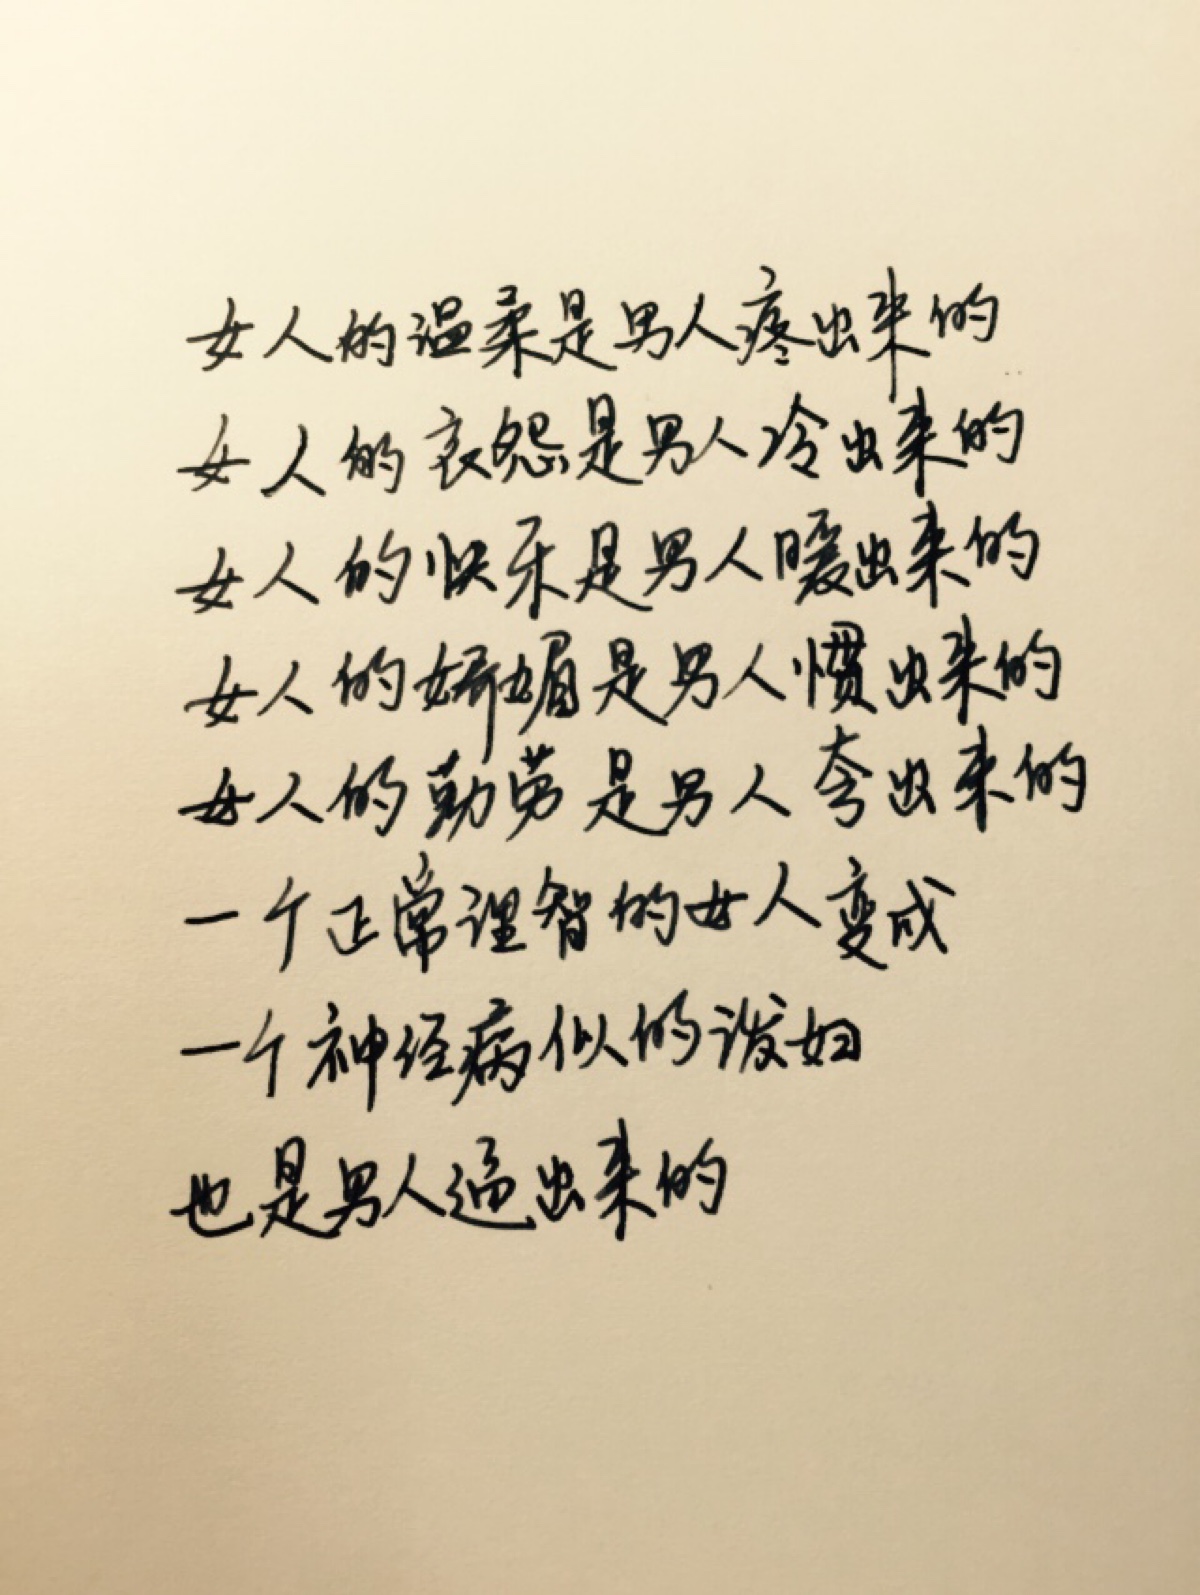 女人的温柔是男人疼出来的
女人的哀怨是男人冷出来的
女人的快乐是男人暖出来的
女人的娇媚是男人惯出来的
女人的勤劳是男人夸出来的
一个正常理智的女人变成
一个神经病似的泼妇
也是男人逼出来的